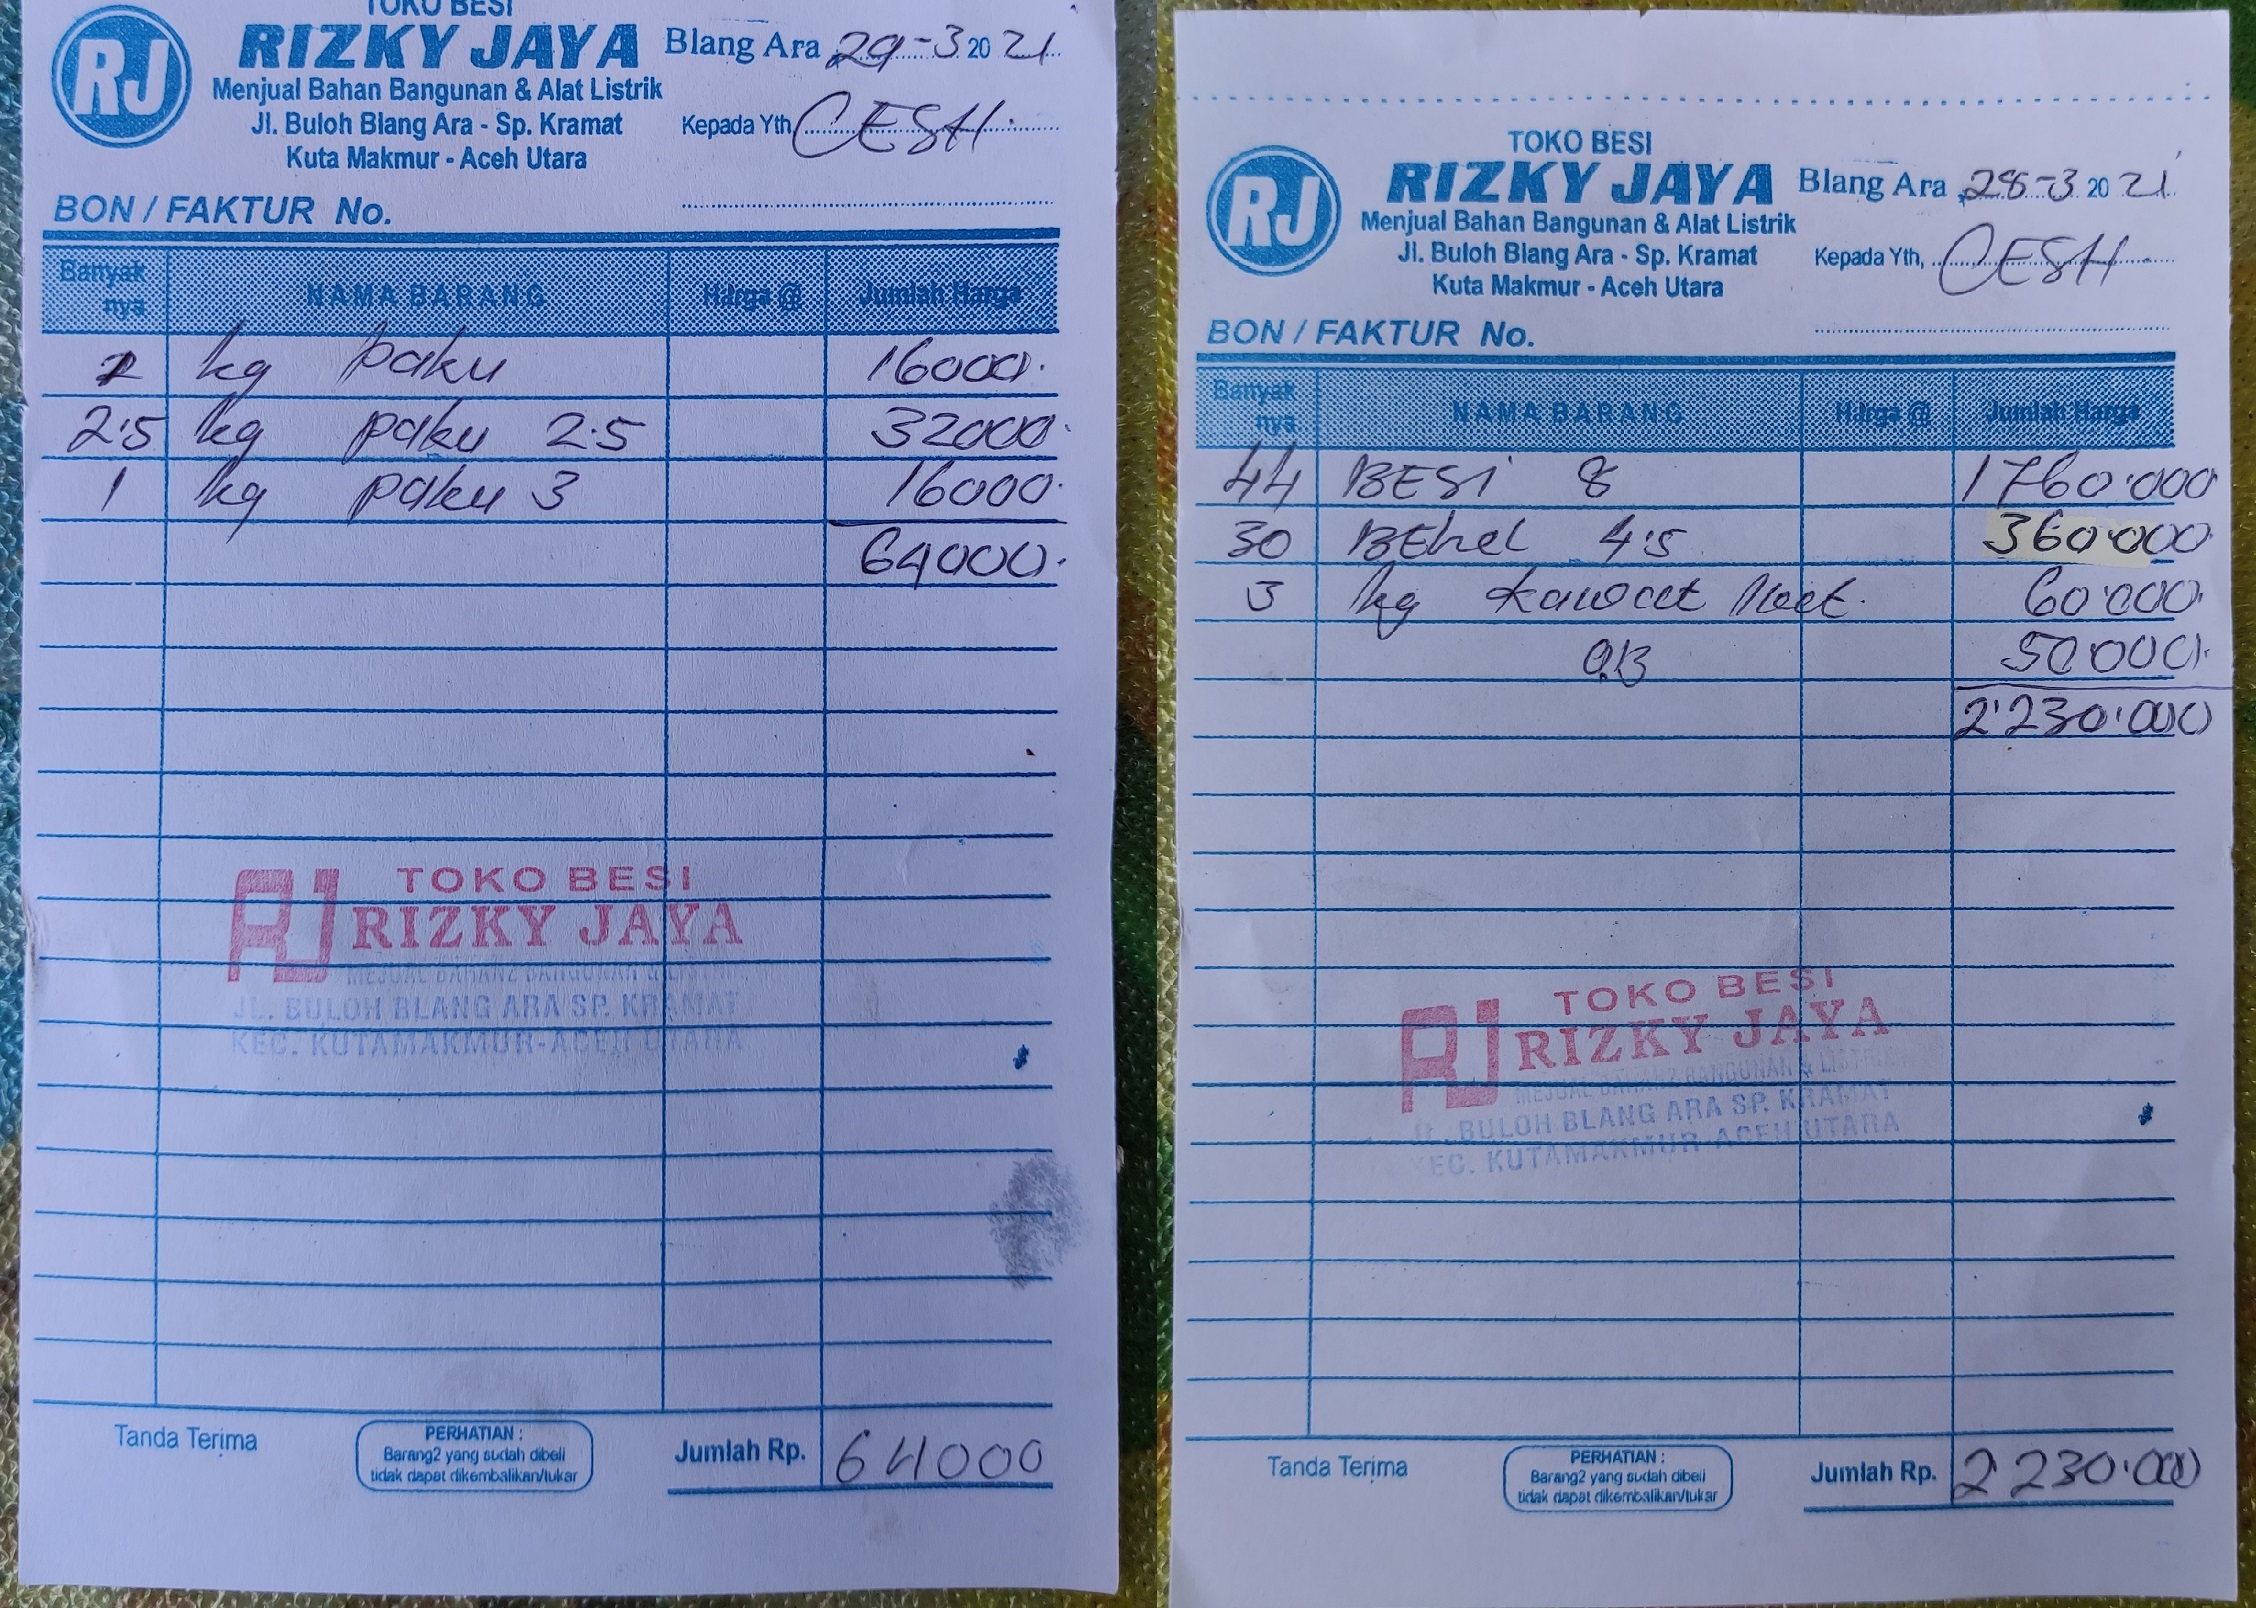 TOKO BESI
RJ
RIZKY JAYA
Menjual Bahan Bangunan & Alat Listrik
Jl. Buloh Blang Ara - Sp. Kramat
Kuta Makmur - Aceh Utara
Blang Ara, 29-3 20 21
Kepada Yth, CESH.
BON / FAKTUR No.
Banyak nya NAMA BARANG Harga @ Jumlah Harga
kg paku 16000.
2.5 kg paku 2.5 32000.
1 kg paku 3 16000.
64000.
RJ TOKO BESI
RIZKY JAYA
MEJUAL BAHAN2 BANGUNAN & LISTRIK
JL. BULOH BLANG ARA SP. KRAMAT
KEC. KUTAMAKMUR-ACEH UTARA
Tanda Terima
PERHATIAN :
Barang2 yang sudah dibeli
tidak dapat dikembalikan/tukar
Jumlah Rp. 64000
TOKO BESI
RJ
RIZKY JAYA
Menjual Bahan Bangunan & Alat Listrik
Jl. Buloh Blang Ara - Sp. Kramat
Kuta Makmur - Aceh Utara
Blang Ara, 28-3 20 21
Kepada Yth, CESH.
BON / FAKTUR No.
Banyak nya NAMA BARANG Harga @ Jumlah Harga
44 BESI 8 1760.000
30 BEhel 4.5 360.000
3 kg kawat 60.000
50.000.
2.230.000
RJ TOKO BESI
RIZKY JAYA
MEJUAL BAHAN2 BANGUNAN & LISTRIK
JL. BULOH BLANG ARA SP. KRAMAT
KEC. KUTAMAKMUR-ACEH UTARA
Tanda Terima
PERHATIAN :
Barang2 yang sudah dibeli
tidak dapat dikembalikan/tukar
Jumlah Rp. 2.230.000